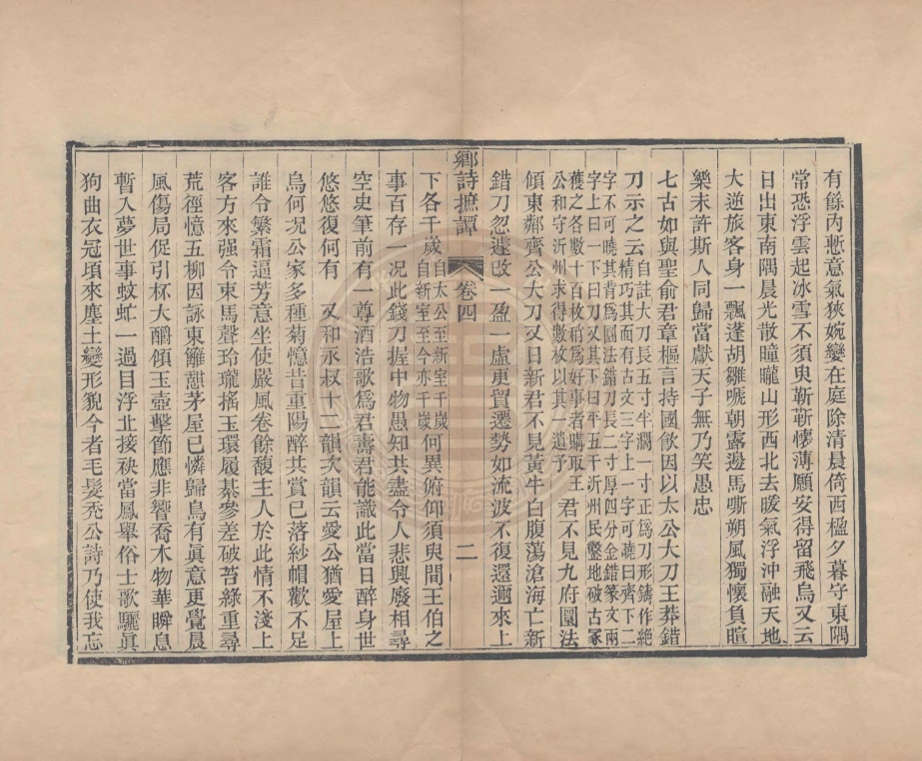 有餘內慙意氣狹婉孌在庭除清晨倚西楹夕暮守東隅
常恐浮雲起冰雪不須臾靳靳懷薄願安得留飛烏又云
日出東南隅晨光散曈曨山形西北去暖氣浮沖融天地
大逆旅客身一飄蓬胡雛嗁朝露邊馬嘶朔風獨懷負暄
樂未許斯人同歸當獻天子無乃笑愚忠
七古如與聖俞君章樞言持國飲因以太公大刀王莽錯
刀示之云
自註大刀長五寸半濶一寸正爲刀形鑄作絶
精巧其面有古文三字上一字可曉曰齊下二
字不可曉其背爲圜法錯刀長二寸厚四分金錯篆文兩
字上曰一下曰刀又其下曰平五千沂州民鑿地破古冢
穫之各數十百枚稍爲好事者購取王
公和守沂州求得數枚以其一遺予
君不見九府圜法
傾東鄰齊公大刀又日新君不見黃牛白腹蕩滄海亡新
錯刀忽遽改一盈一虛更貿遷勢如流波不復還邇來上
鄉詩摭譚
卷四
二
下各千歲
自太公至新室千歲
自新室至今亦千歲
何異俯仰須臾間王伯之
事百存一况此錢刀握中物愚知共盡令人悲興廢相尋
空史筆前有一尊酒浩歌爲君壽君能識此當日醉身世
悠悠復何有 又和永叔十二韻次韻云愛公猶愛屋上
烏何况公家多種菊憶昔重陽醉共賞已落紗帽歡不足
誰令繁霜逼芳意坐使嚴風卷餘馥主人於此情不淺上
客方來强令束馬聲玲瓏搖玉環履綦參差破苔綠重尋
荒徑憶五柳因詠東籬憇茅屋已憐歸鳥有眞意更覺晨
風傷局促引杯大釂傾玉壺擊節應非響喬木物華瞬息
暫入夢世事蚊蚿一過目浮北接袂當鳳舉俗士歌驪眞
狗曲衣冠頃來塵土變形貌今者毛髮禿公詩乃使我忘